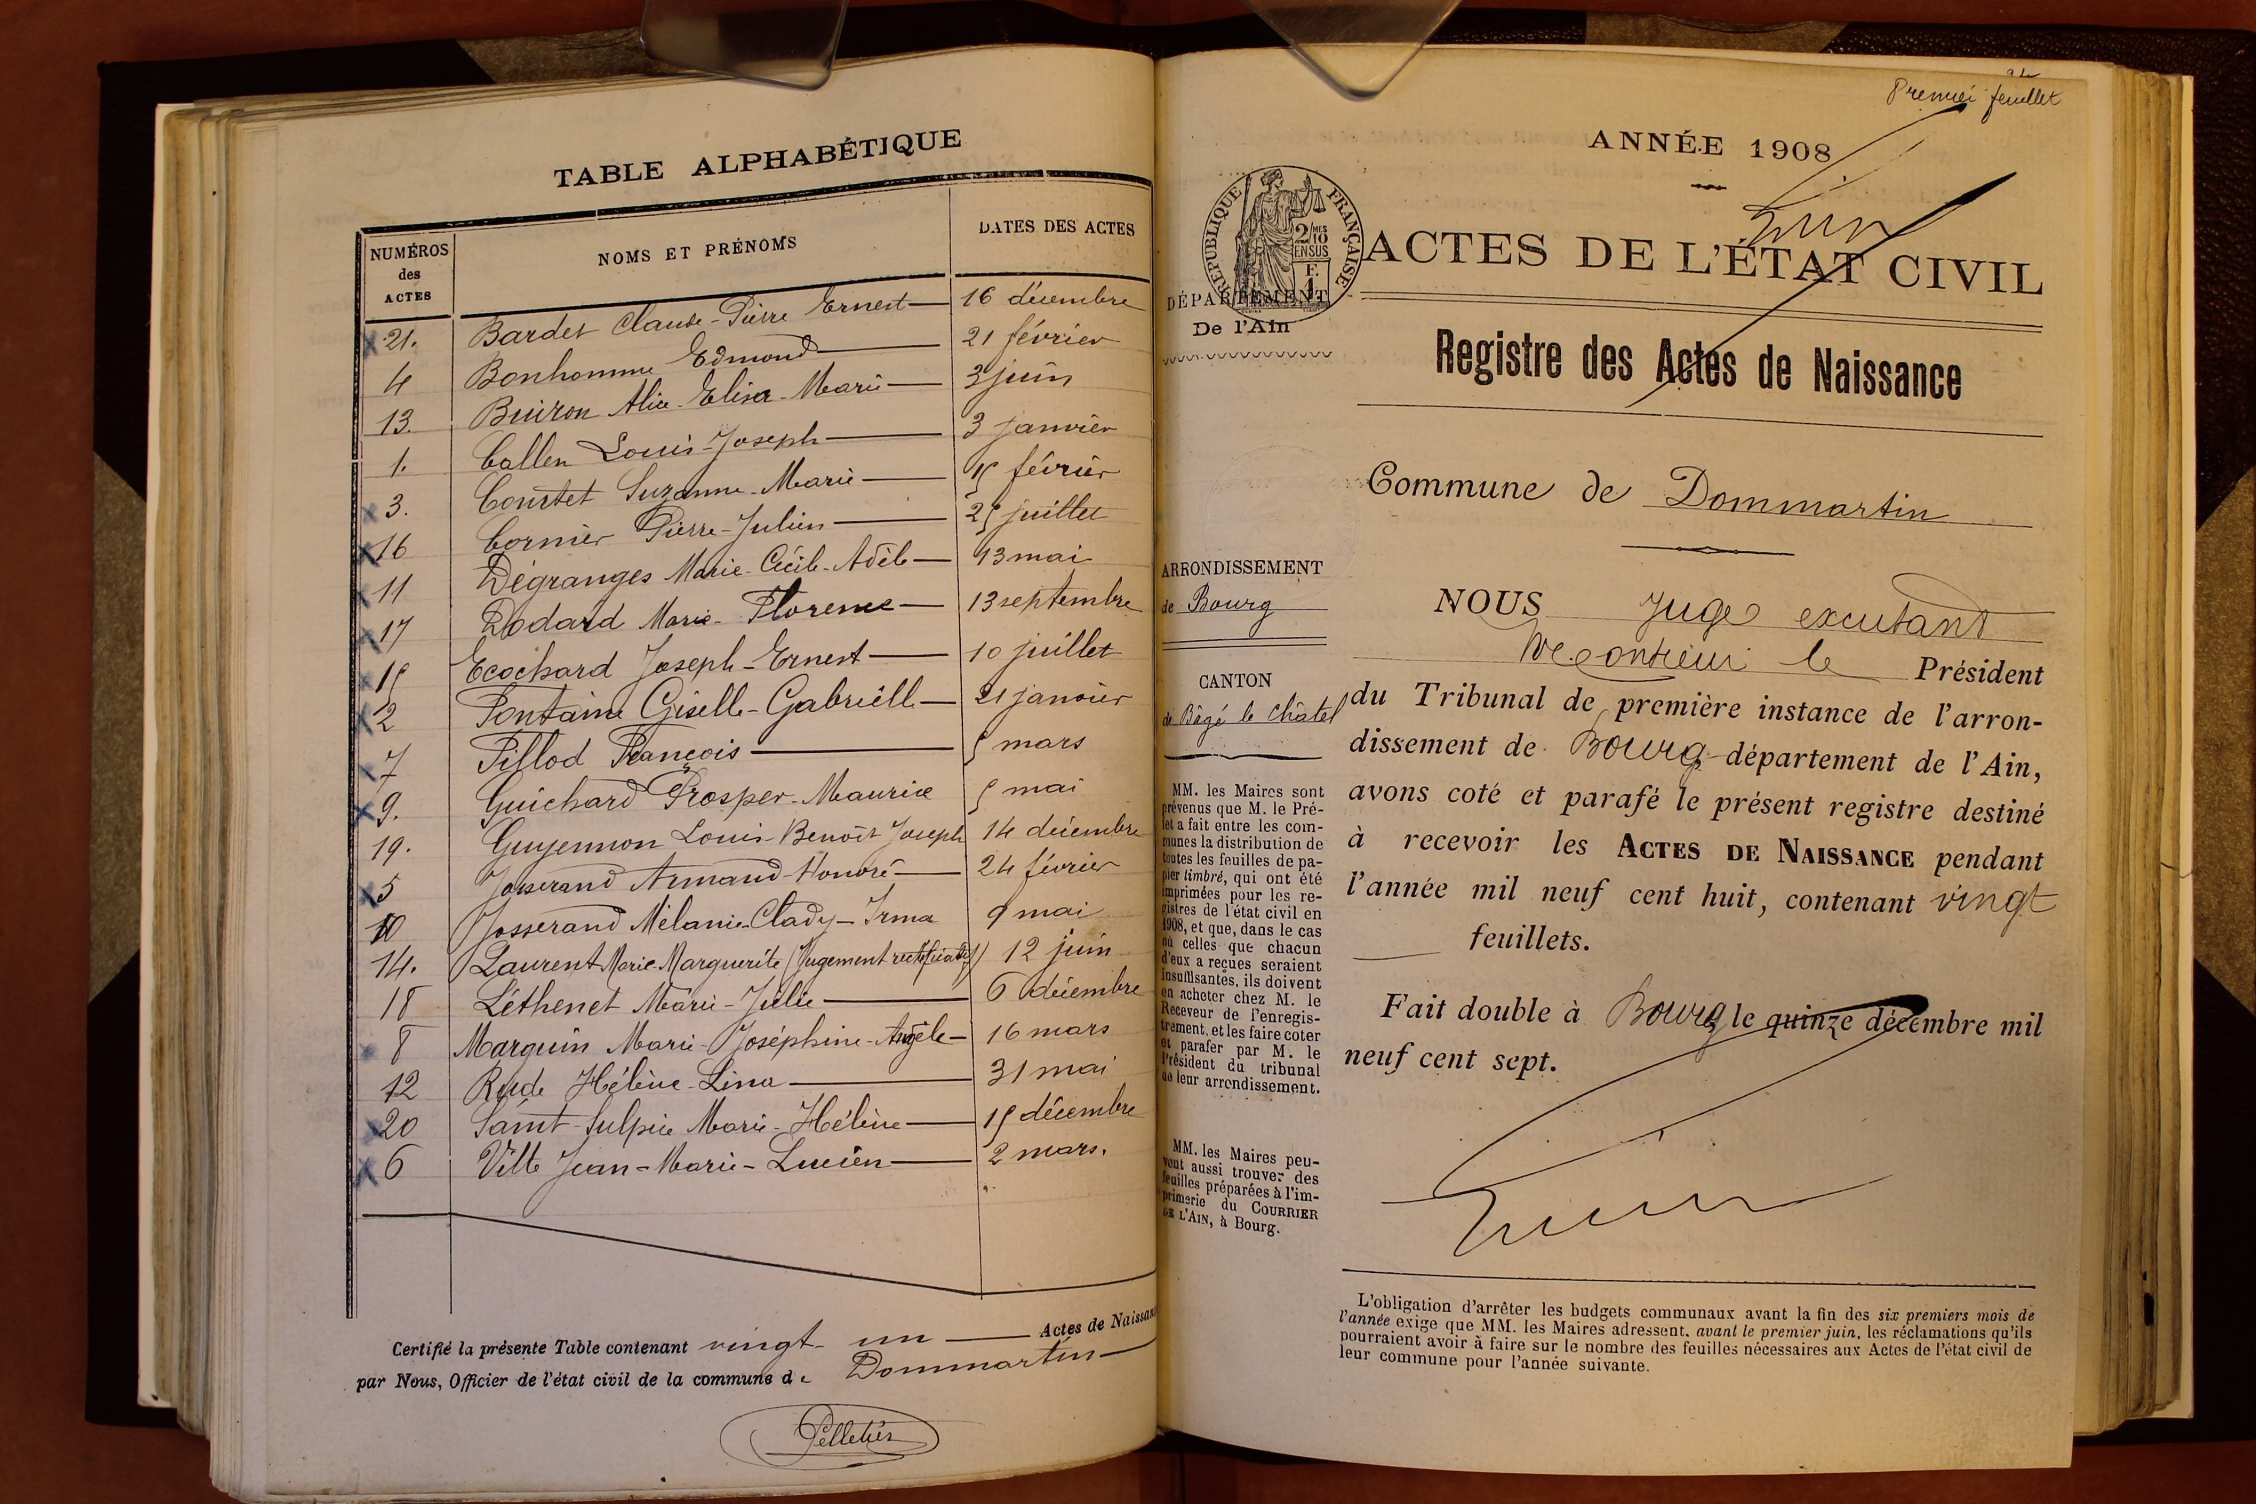 TABLE ALPHABÉTIQUE
NUMÉROS des ACTES NOMS ET PRÉNOMS DATES DES ACTES
21. Bardet Claude-Pierre Ernest 16 décembre
4 Bonhomme Edmond 21 février
13. Buiron Alice-Elisa-Marie 3 juin
1. Callen Louis-Joseph 3 janvier
3. Courtet Suzanne-Marie 15 février
16 Cornier Pierre-Julien 25 juillet
11 Dégranges Marie-Cécile-Adèle 13 mai
17 Dodard Marie-Florence 13 septembre
15 Ecochard Joseph-Ernest 10 juillet
2 Fontaine Giselle-Gabrielle 21 janvier
7 Fillod François 5 mars
9. Guichard Prosper-Maurice 5 mai
19. Guyennon Louis-Benoît Joseph 14 décembre
5 Josserand Armand-Honoré 24 février
10 Josserand Mélanie-Clady-Irma 9 mai
14. Laurent Marie-Marguerite (Jugement rectificatif) 12 juin
18 Léthenet Marie-Julie 6 décembre
8 Marguin Marie-Joséphine-Angèle 16 mars
12 Rude Hélène-Lina 31 mai
20 Saint-Sulpice Marie-Hélène 15 décembre
6 Ville Jean-Marie-Lucien 2 mars.
Certifié la présente Table contenant vingt-un Actes de Naissan
par Nous, Officier de l'état civil de la commune de Dommartin
Pelletier
Premier feuillet
ANNÉE 1908
RÉPUBLIQUE FRANÇAISE
2/MES 10 EN SUS
F. 1
ACTES DE L'ÉTAT CIVIL
DÉPARTEMENT
De l'Ain
Registre des Actes de Naissance
Commune de Dommartin
ARRONDISSEMENT
de Bourg
CANTON
de Bâgé le Châtel
MM. les Maires sont
prévenus que M. le Pré-
fet a fait entre les com-
munes la distribution de
toutes les feuilles de pa-
pier timbré, qui ont été
imprimées pour les re-
gistres de l'état civil en
1908, et que, dans le cas
où celles que chacun
d'eux a reçues seraient
insuffisantes, ils doivent
en acheter chez M. le
Receveur de l'enregis-
trement, et les faire coter
et parafer par M. le
Président du tribunal
de leur arrondissement.
MM. les Maires peu-
vent aussi trouver des
feuilles préparées à l'im-
primerie du COURRIER
DE L'AIN, à Bourg.
NOUS Juge excusant
Monsieur le Président
du Tribunal de première instance de l'arron-
dissement de Bourg département de l'Ain,
avons coté et parafé le présent registre destiné
à recevoir les ACTES DE NAISSANCE pendant
l'année mil neuf cent huit, contenant vingt
feuillets.
Fait double à Bourg, le quinze décembre mil
neuf cent sept.
L'obligation d'arrêter les budgets communaux avant la fin des six premiers mois de
l'année exige que MM. les Maires adressent, avant le premier juin, les réclamations qu'ils
pourraient avoir à faire sur le nombre des feuilles nécessaires aux Actes de l'état civil de
leur commune pour l'année suivante.